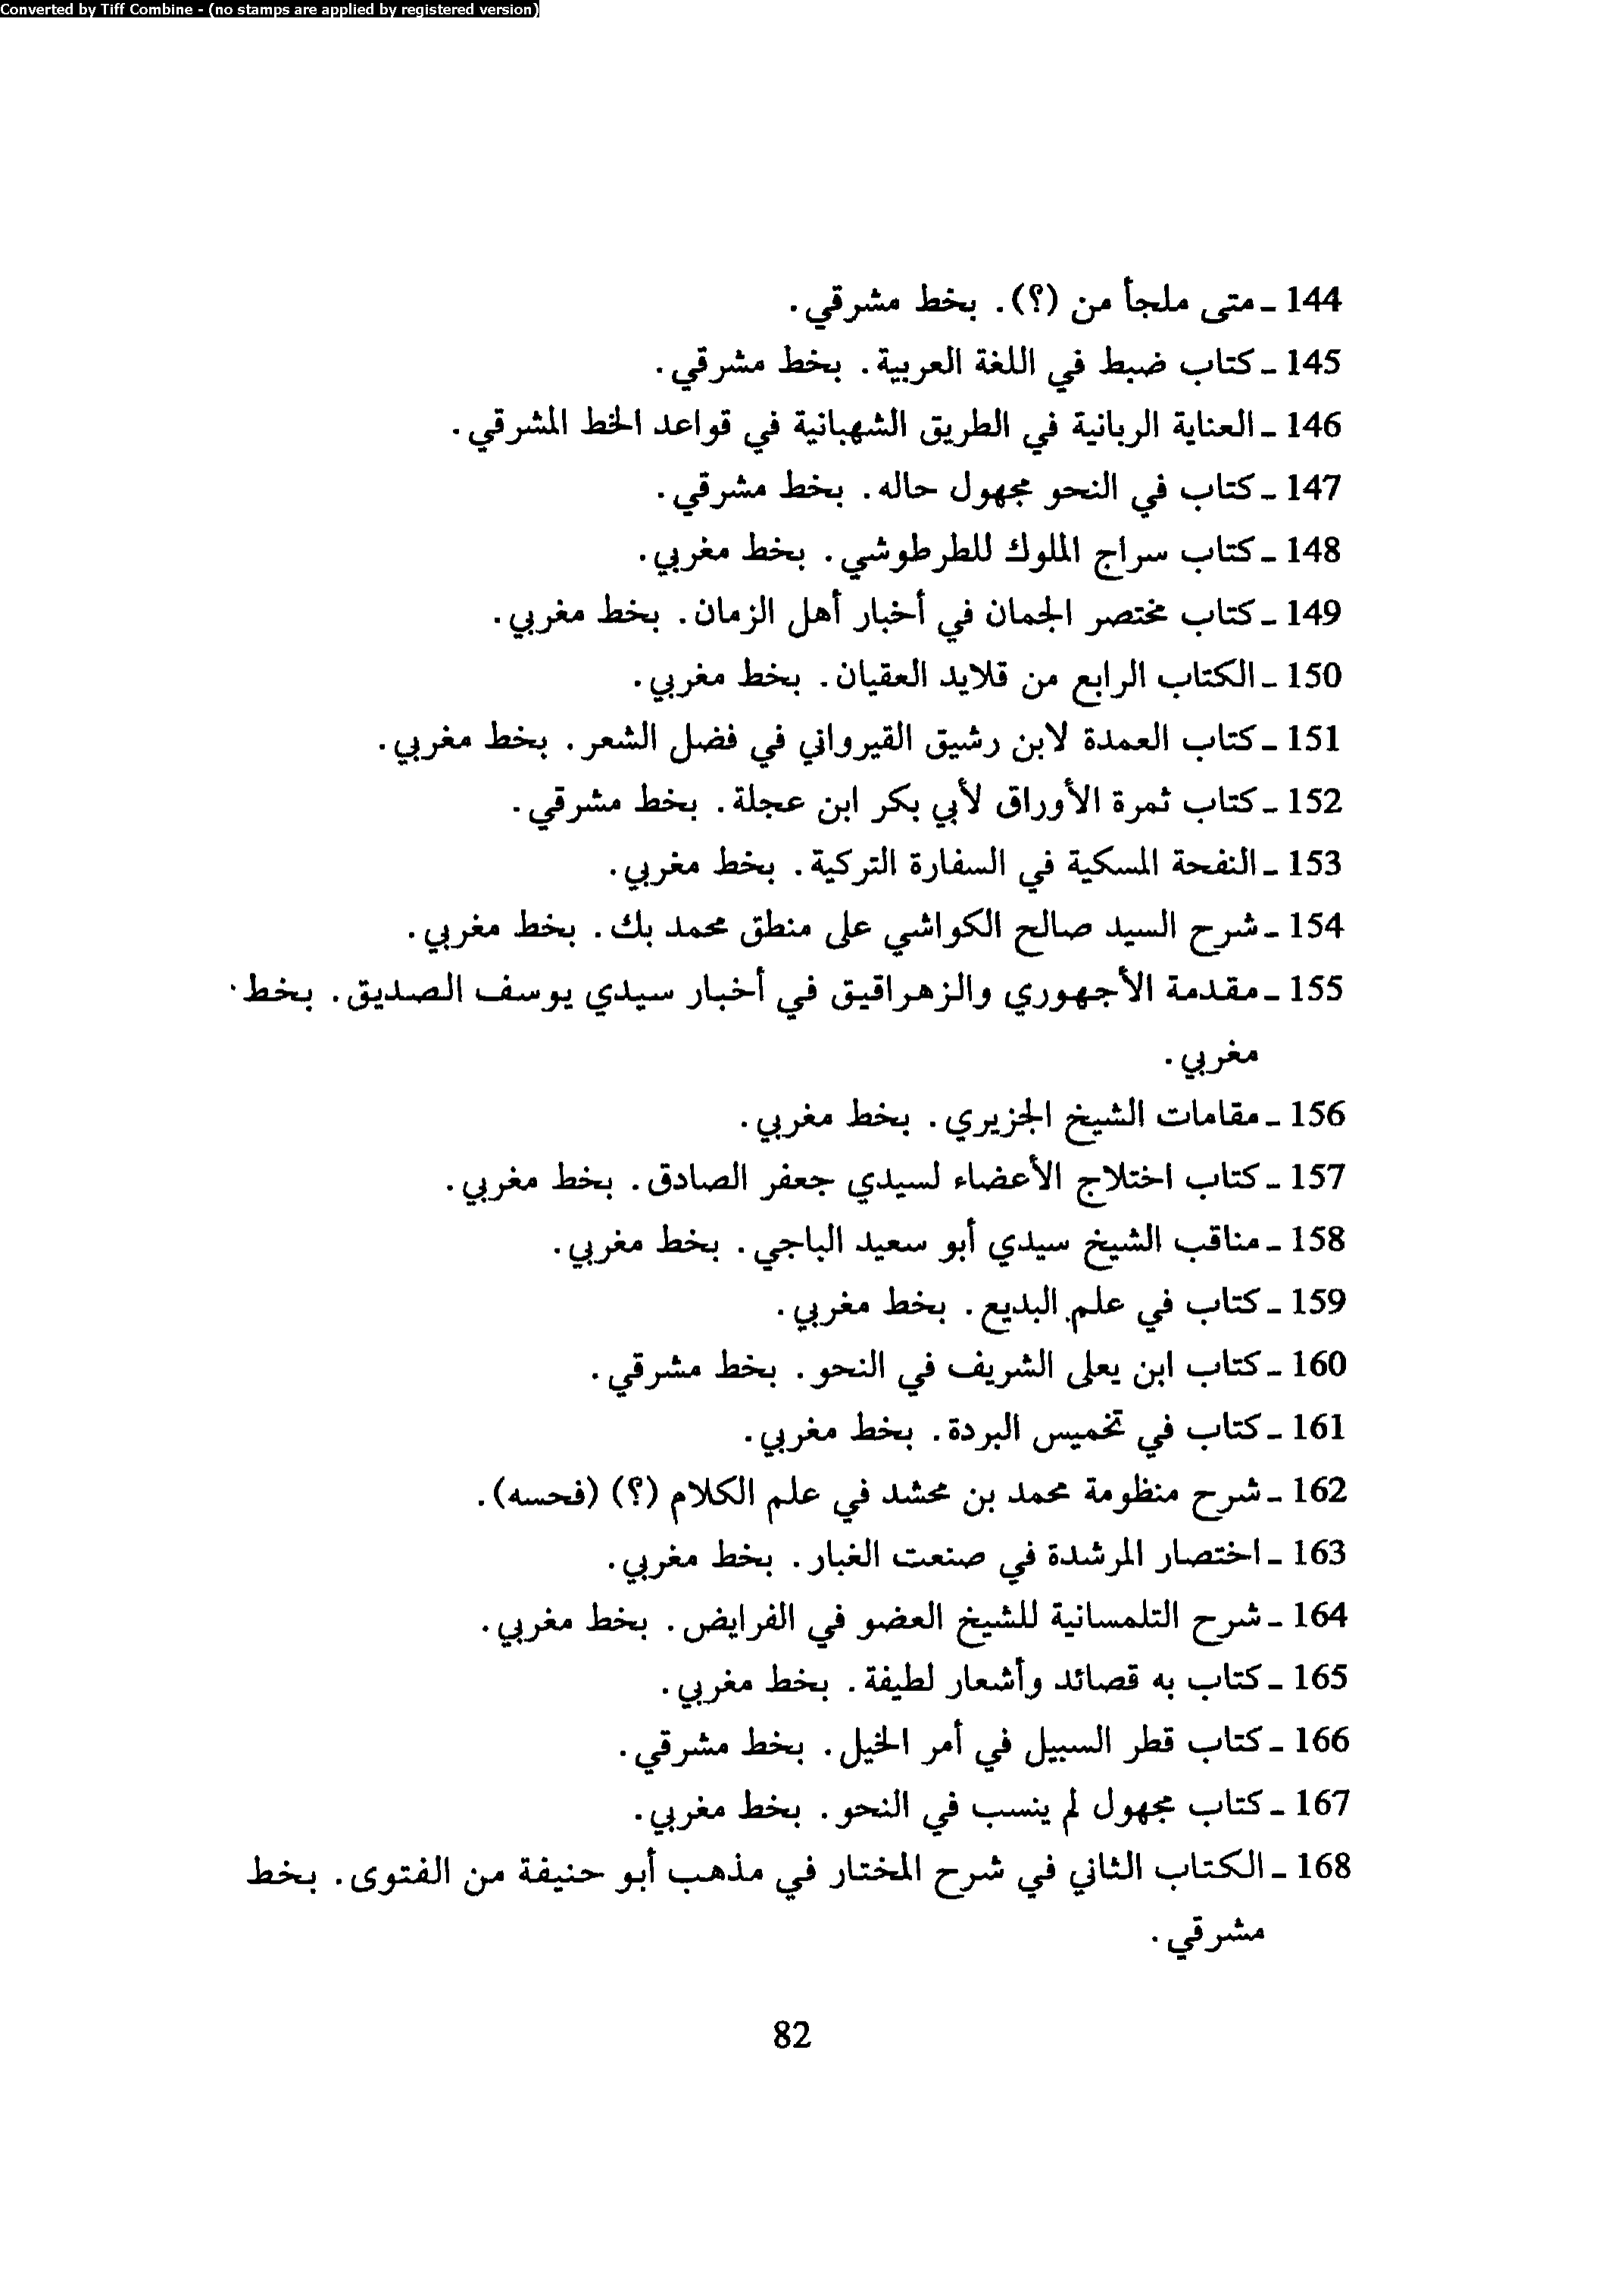 Converted by Tiff Combine - (no stamps are applied by registered version)
144 ـ متى ملجأ من (؟). بخط مشرقي.
145 ـ كتاب ضبط في اللغة العربية. بخط مشرقي.
146 ـ العناية الربانية في الطريق الشهبانية في قواعد الخط المشرقي.
147 ـ كتاب في النحو مجهول حاله. بخط مشرقي.
148 ـ كتاب سراج الملوك للطرطوشي. بخط مغربي.
149 ـ كتاب مختصر الجمان في أخبار أهل الزمان. بخط مغربي.
150 ـ الكتاب الرابع من قلايد العقيان. بخط مغربي.
151 ـ كتاب العمدة لابن رشيق القيرواني في فضل الشعر. بخط مغربي.
152 ـ كتاب ثمرة الأوراق لأبي بكر ابن عجلة. بخط مشرقي.
153 ـ النفحة المسكية في السفارة التركية. بخط مغربي.
154 ـ شرح السيد صالح الكواشي على منطق محمد بك. بخط مغربي.
155 ـ مقدمة الأجهوري والزهراقيق في أخبار سيدي يوسف الصديق. بخط
مغربي.
156 ـ مقامات الشيخ الجزيري. بخط مغربي.
157 ـ كتاب اختلاج الأعضاء لسيدي جعفر الصادق. بخط مغربي.
158 ـ مناقب الشيخ سيدي أبو سعيد الباجي. بخط مغربي.
159 ـ كتاب في علم البديع. بخط مغربي.
160 ـ كتاب ابن يعلى الشريف في النحو. بخط مشرقي.
161 ـ كتاب في تخميس البردة. بخط مغربي.
162 ـ شرح منظومة محمد بن محشد في علم الكلام (؟) (فحسه).
163 ـ اختصار المرشدة في صنعت الغبار. بخط مغربي.
164 ـ شرح التلمسانية للشيخ العضو في الفرايض. بخط مغربي.
165 ـ كتاب به قصائد وأشعار لطيفة. بخط مغربي.
166 ـ كتاب قطر السبيل في أمر الخيل. بخط مشرقي.
167 ـ كتاب مجهول لم ينسب في النحو. بخط مغربي.
168 ـ الكتاب الثاني في شرح المختار في مذهب أبو حنيفة من الفتوى. بخط
مشرقي.
82